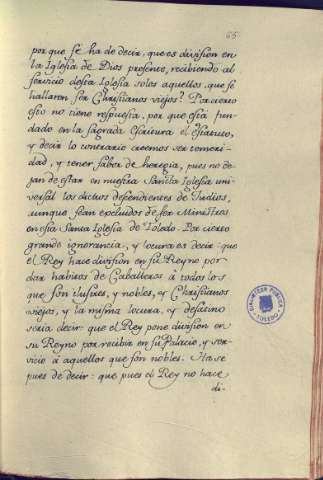 65
por que se ha de decir, que es division en
la Iglesia de Dios presente, recibiendo al
servicio desta Iglesia solos aquellos, que se
hallaren ser Christianos viejos? Por cierto
esto no tiene respuesta, por que està fun-
dado en la sagrada escritura el estatuto,
y decir lo contrario creemos ser temeri-
dad, y tener sabor de heregia, pues no de-
jan de estar en nuestra Sancta Iglesia uni-
versal los dichos descendientes de Iudios,
aunque sean excluidos de ser Ministros
en esta Santa Iglesia de Toledo. Por cierto
grande ignorancia, y locura es decir que
el Rey hace division en su Reyno por
dar habitos de Caballeros à todos los
que son ilustres, y nobles, y Christianos
viejos, y la misma locura, y desatino
seria decir que el Rey pone division en
su Reyno por recibir en su Palacio, y ser-
vicio à aquellos que son nobles. Ha se
pues de decir: que pues el Rey no hace
di-
BIBLIOTECA PUBLICA
TOLEDO